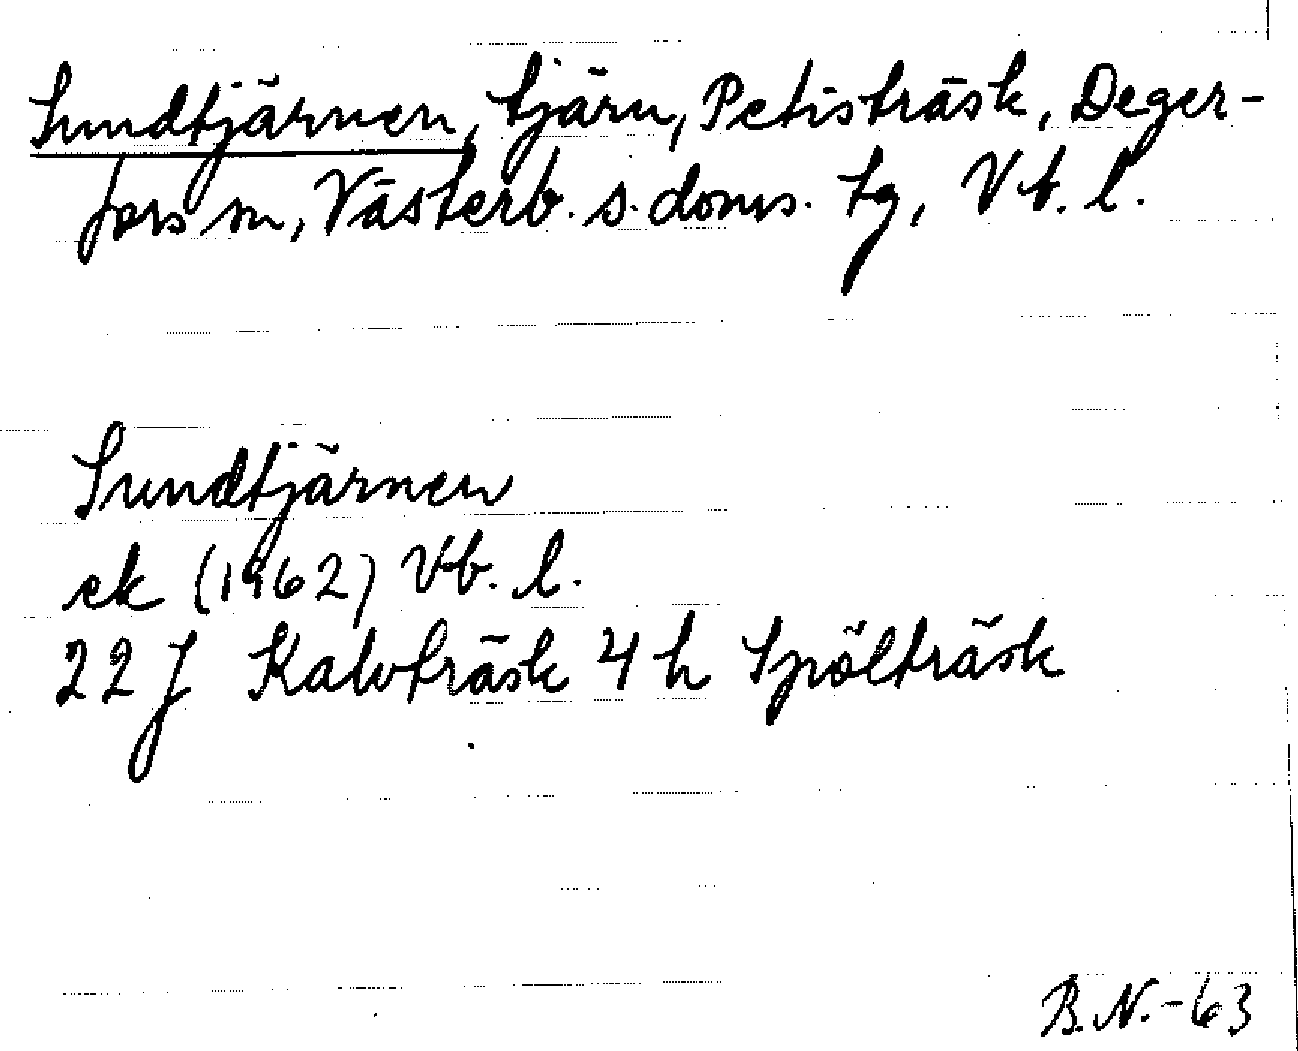 Sundtjärnen, tjärn, Petisträsk, Deger-
fors sn, Västerb. s. doms. tg, Vb. l.
Sundtjärnen
ek (1962) Vb. l.
22 J Kalvträsk 4 h Spölträsk
B.N.-63